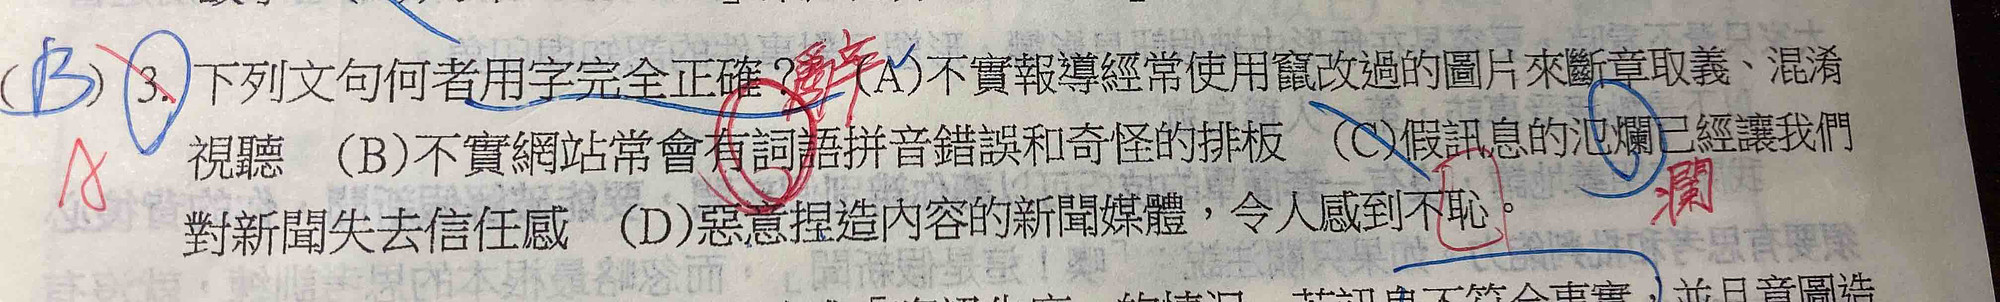 (B) 3. 下列文句何者用字完全正確？ (A)不實報導經常使用竄改過的圖片來斷章取義、混淆
視聽 (B)不實網站常會有詞語拼音錯誤和奇怪的排板 (C)假訊息的氾爛已經讓我們
A
瀾
對新聞失去信任感 (D)惡意捏造內容的新聞媒體，令人感到不恥。
不符合事實，並且意圖造